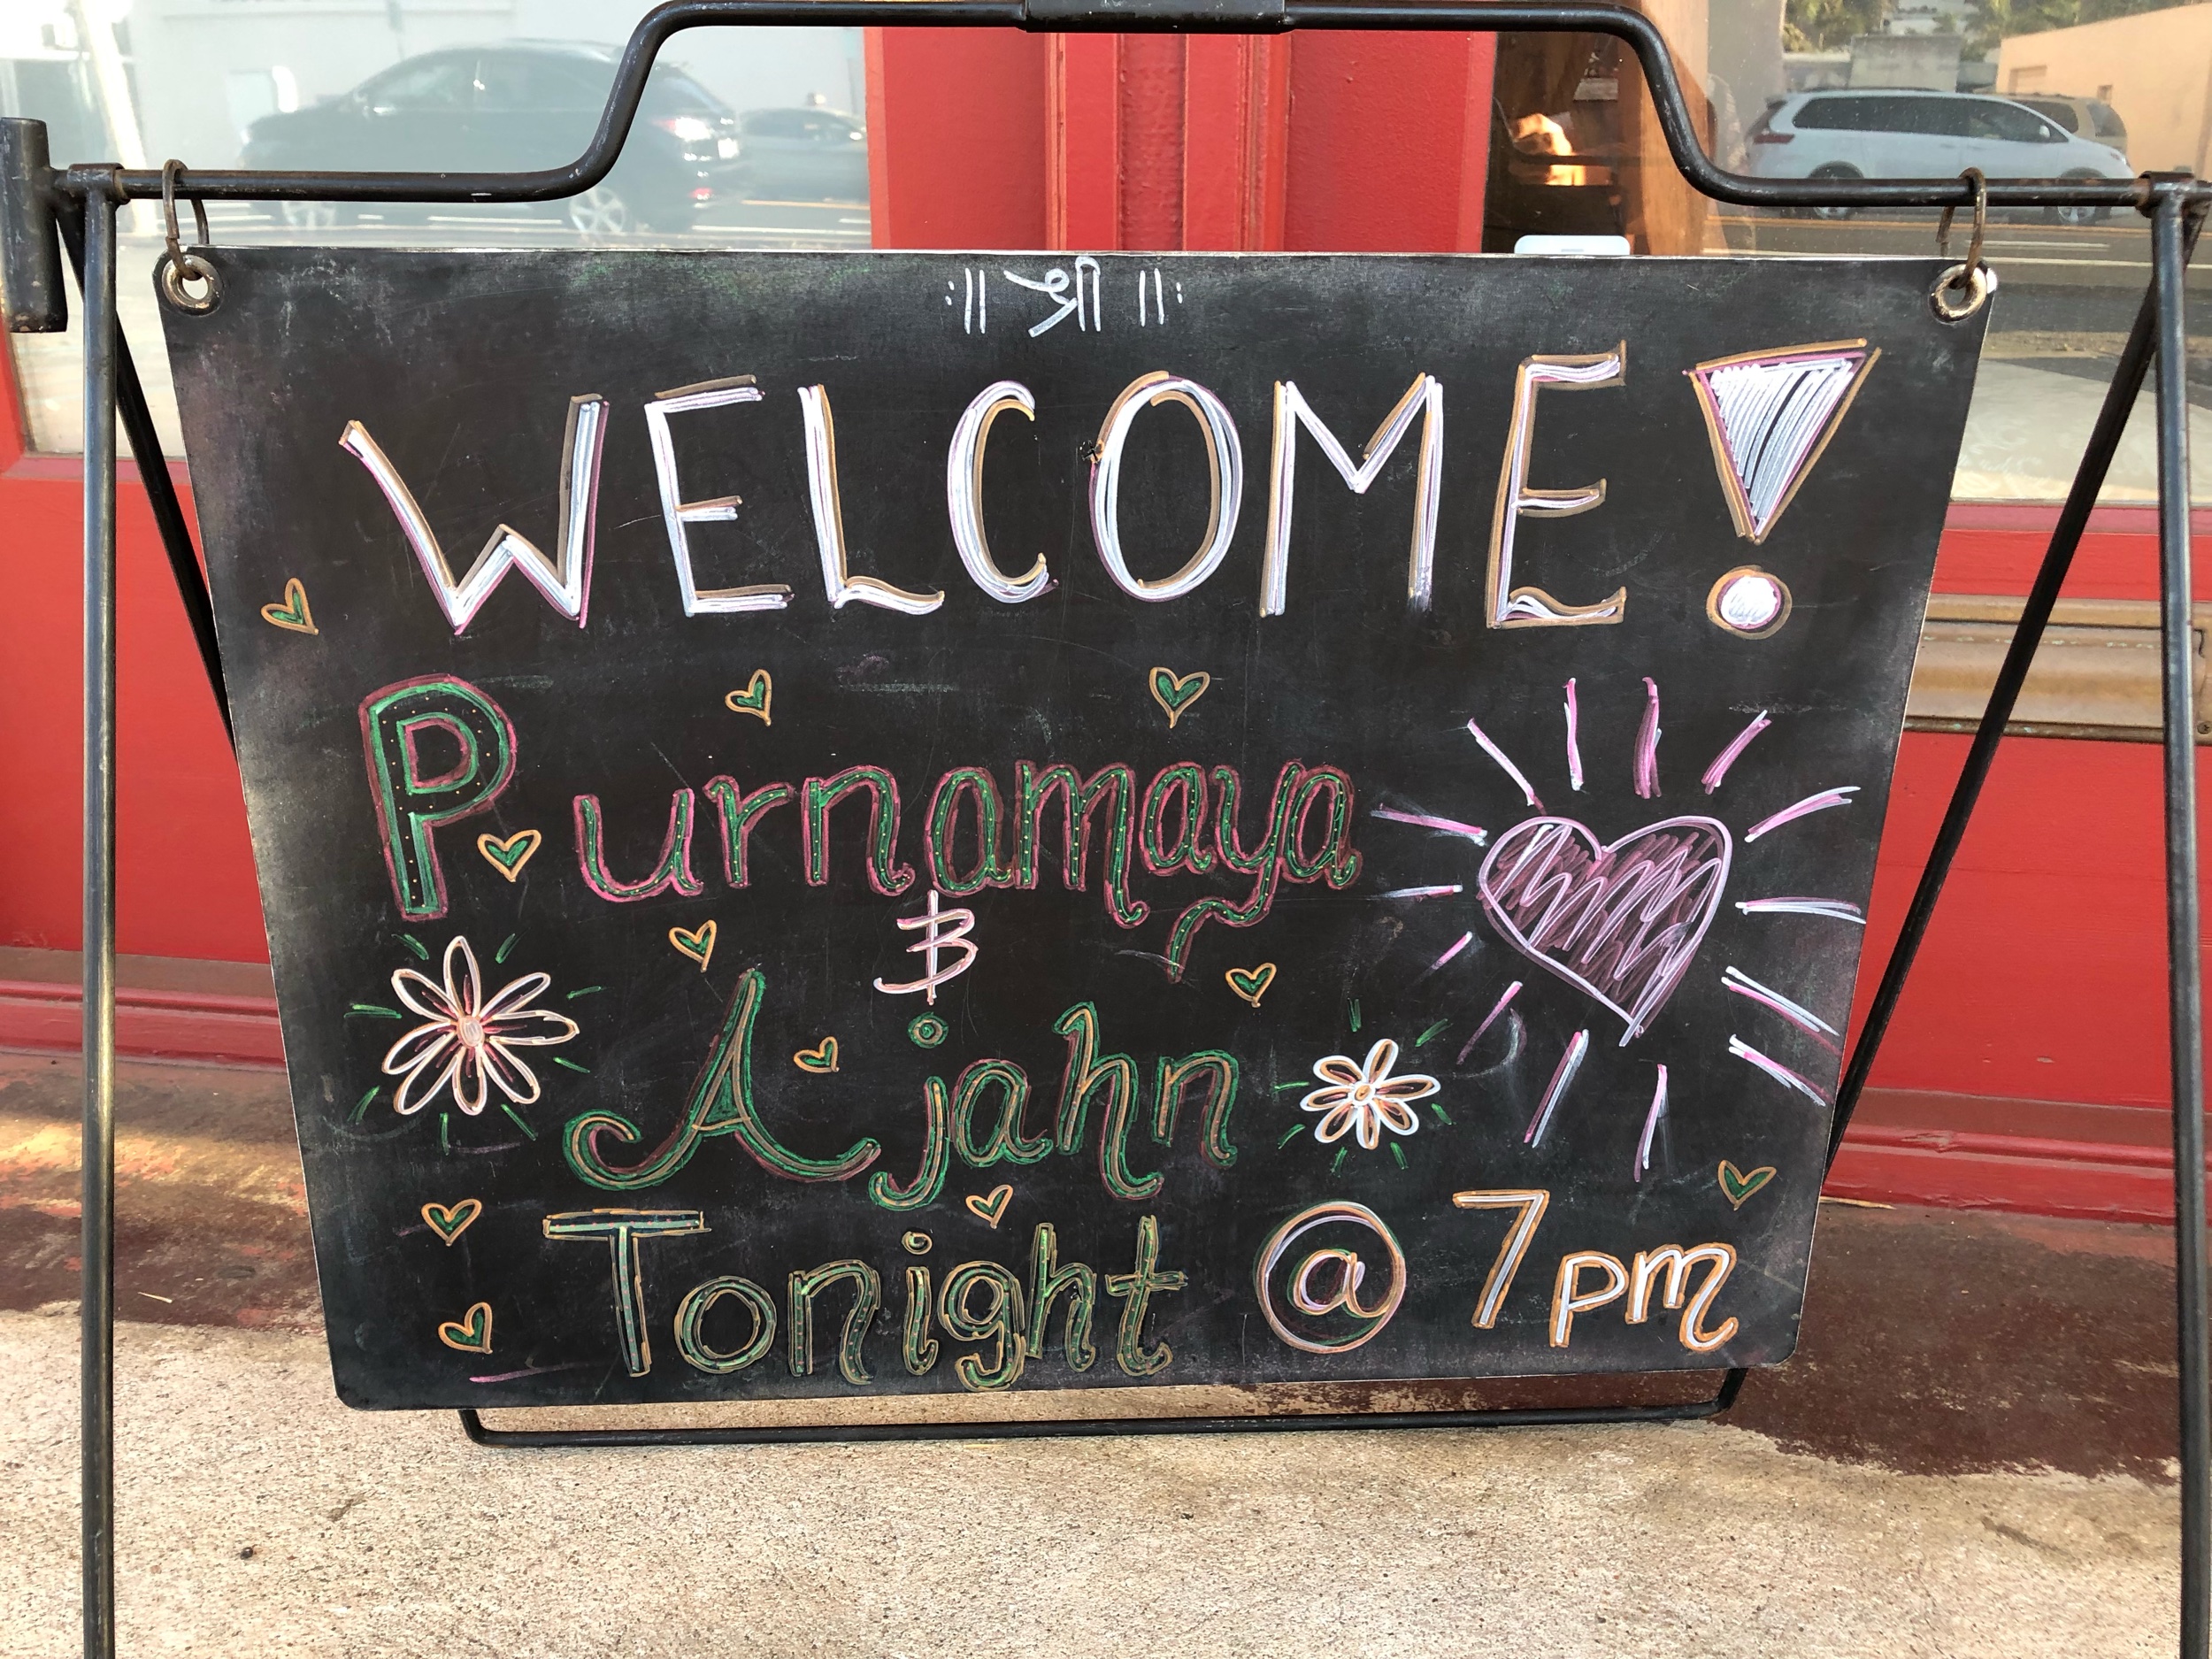 :॥ श्री ॥:
WELCOME!
Purnamaya
&
Ajahn
Tonight @ 7pm